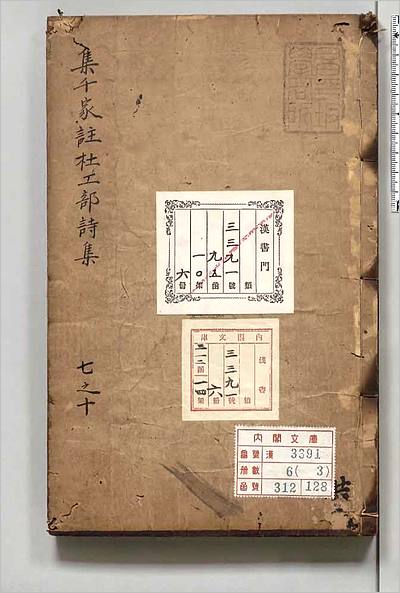 集千家註杜工部詩集
七之十
漢書門
類
三三九一號
九五函
一〇架
六冊
內閣文庫
漢書
三三九一號
六冊
內閣文庫
番號 漢 3391
册數 6( 3)
函號 312 128